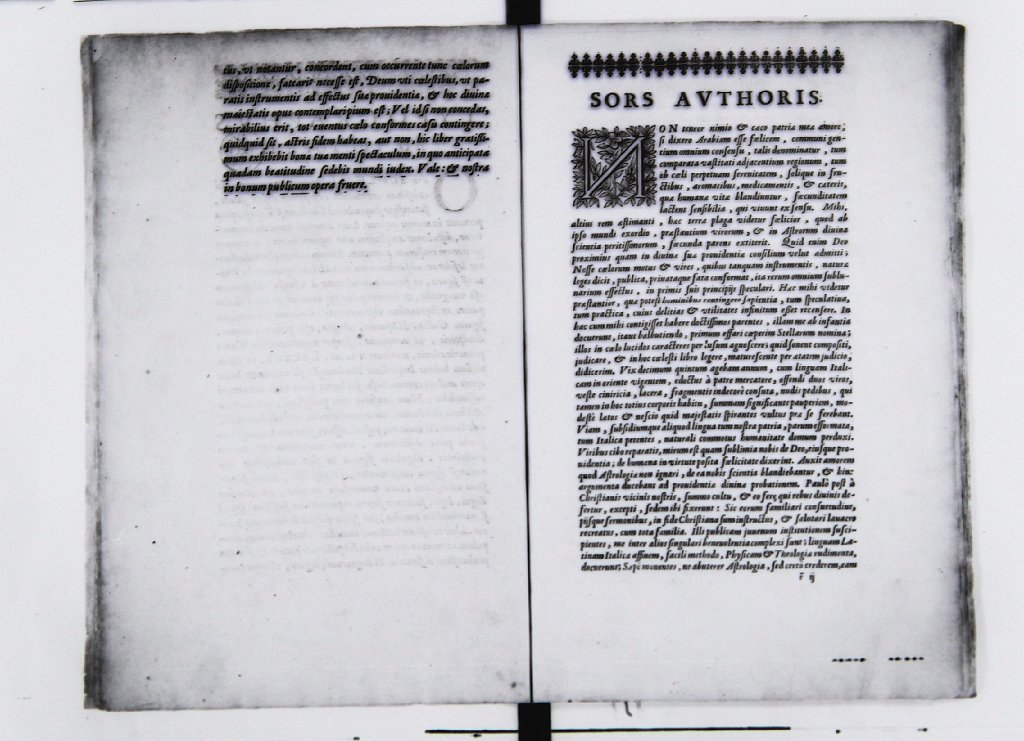 tus, vt notantur, concordent, cum occurrente tunc cælorum
dispositione, fatearis necesse est, Deum vti cælestibus, vt pa-
ratis instrumentis ad effectus suæ prouidentiæ, & hoc diuinæ
maiestatis opus contemplari pium est; Vel id si non concedas,
mirabilius erit, tot euentus cælo conformes casu contingere;
quidquid sit, astris fidem habeas, aut non, hic liber gratissi-
mum exhibebit bona tua menti spectaculum, in quo anticipata
quadam beatitudine sedebis mundi iudex. Vale: & nostra
in bonum publicum opera fruere.
SORS AVTHORIS.
NON teneor nimio & cæco patriæ meæ amore;
si dixero Arabiam esse fælicem, communi gen-
tium omnium consensu, talis denominatur, tum
comparata vastitati adjacentium regionum, tum
ob cæli perpetuam serenitatem, solique in fru-
ctibus, aromatibus, medicamentis, & cæteris,
quæ humanæ vitæ blandiuntur, fæcunditatem
lactent sensibilia, qui viuunt ex sensu. Mihi,
altius rem æstimanti, hæc terræ plaga videtur fælicior, quod ab
ipso mundi exordio, præstantium virorum, & in Astrorum diuina
scientia peritissimorum, fæcunda parens extiterit. Quid enim Deo
proximius quam in diuinæ suæ prouidentiæ consilium velut admitti;
Nosse cælorum motus & vires, quibus tanquam instrumentis, naturæ
leges dicit, publica, priuataque fata conformat, ita rerum omnium sublu-
narium effectus, in primis suis principijs speculari. Hac mihi videtur
præstantior, quæ potest hominibus contingere sapientia, tum speculatiua,
tum practica, cuius delitias & vtilitates infinitum esset recensere. In
hac cum mihi contigisset habere doctissimos parentes, illam me ab infantia
docuerunt, ita vt balbutiendo, primum effari cæperim Stellarum nomina;
illos in cælo lucidos caracteres per vsum agnoscere; quid sonent compositi,
judicare, & in hoc cælesti libro legere, maturescente per ætatem judicio,
didicerim. Vix decimum quintum agebam annum, cum linguam Itali-
cam in oriente vigentem, edoctus à patre mercatore, offendi duos viros,
veste ciniricia, lacera, fragmentis indecorè consuta, nudis pedibus, qui
tamen in hoc totius corporis habitu, summam significante pauperiem, mo-
destè lætos & nescio quid majestatis spirantes vultus præ se ferebant.
Viam, subsidiumque aliquod lingua tum nostra patria, parum efformata,
tum Italica petentes, naturali commotus humanitate domum perduxi.
Viribus cibo reparatis, mirum est quam sublimia nobis de Deo, eiusque pro-
uidentia; de humana in virtute posita fælicitate dixerint. Auxit amorem
quod Astrologiæ non ignari, de ea nobis scientia blandiebantur, & hinc
argumenta ducebant ad prouidentiæ diuinæ probationem. Paulò post à
Christianis vicinis nostris, summo cultu, & eo fere, qui rebus diuinis de-
fertur, excepti, sedem ibi fixerunt: Sic eorum familiari consuetudine,
pijsque sermonibus, in fide Christiana sum instructus, & salutari lauacro
recreatus, cum tota familia. Illi publicam juuenum institutionem susci-
pientes, me inter alios singulari beneuolentia complexi sunt: linguam La-
tinam Italicæ affinem, facili methodo, Physicam & Theologiæ rudimenta,
docuerunt; Sæpè monentes, ne abuterer Astrologia, sed certò crederem, eam
ē ij